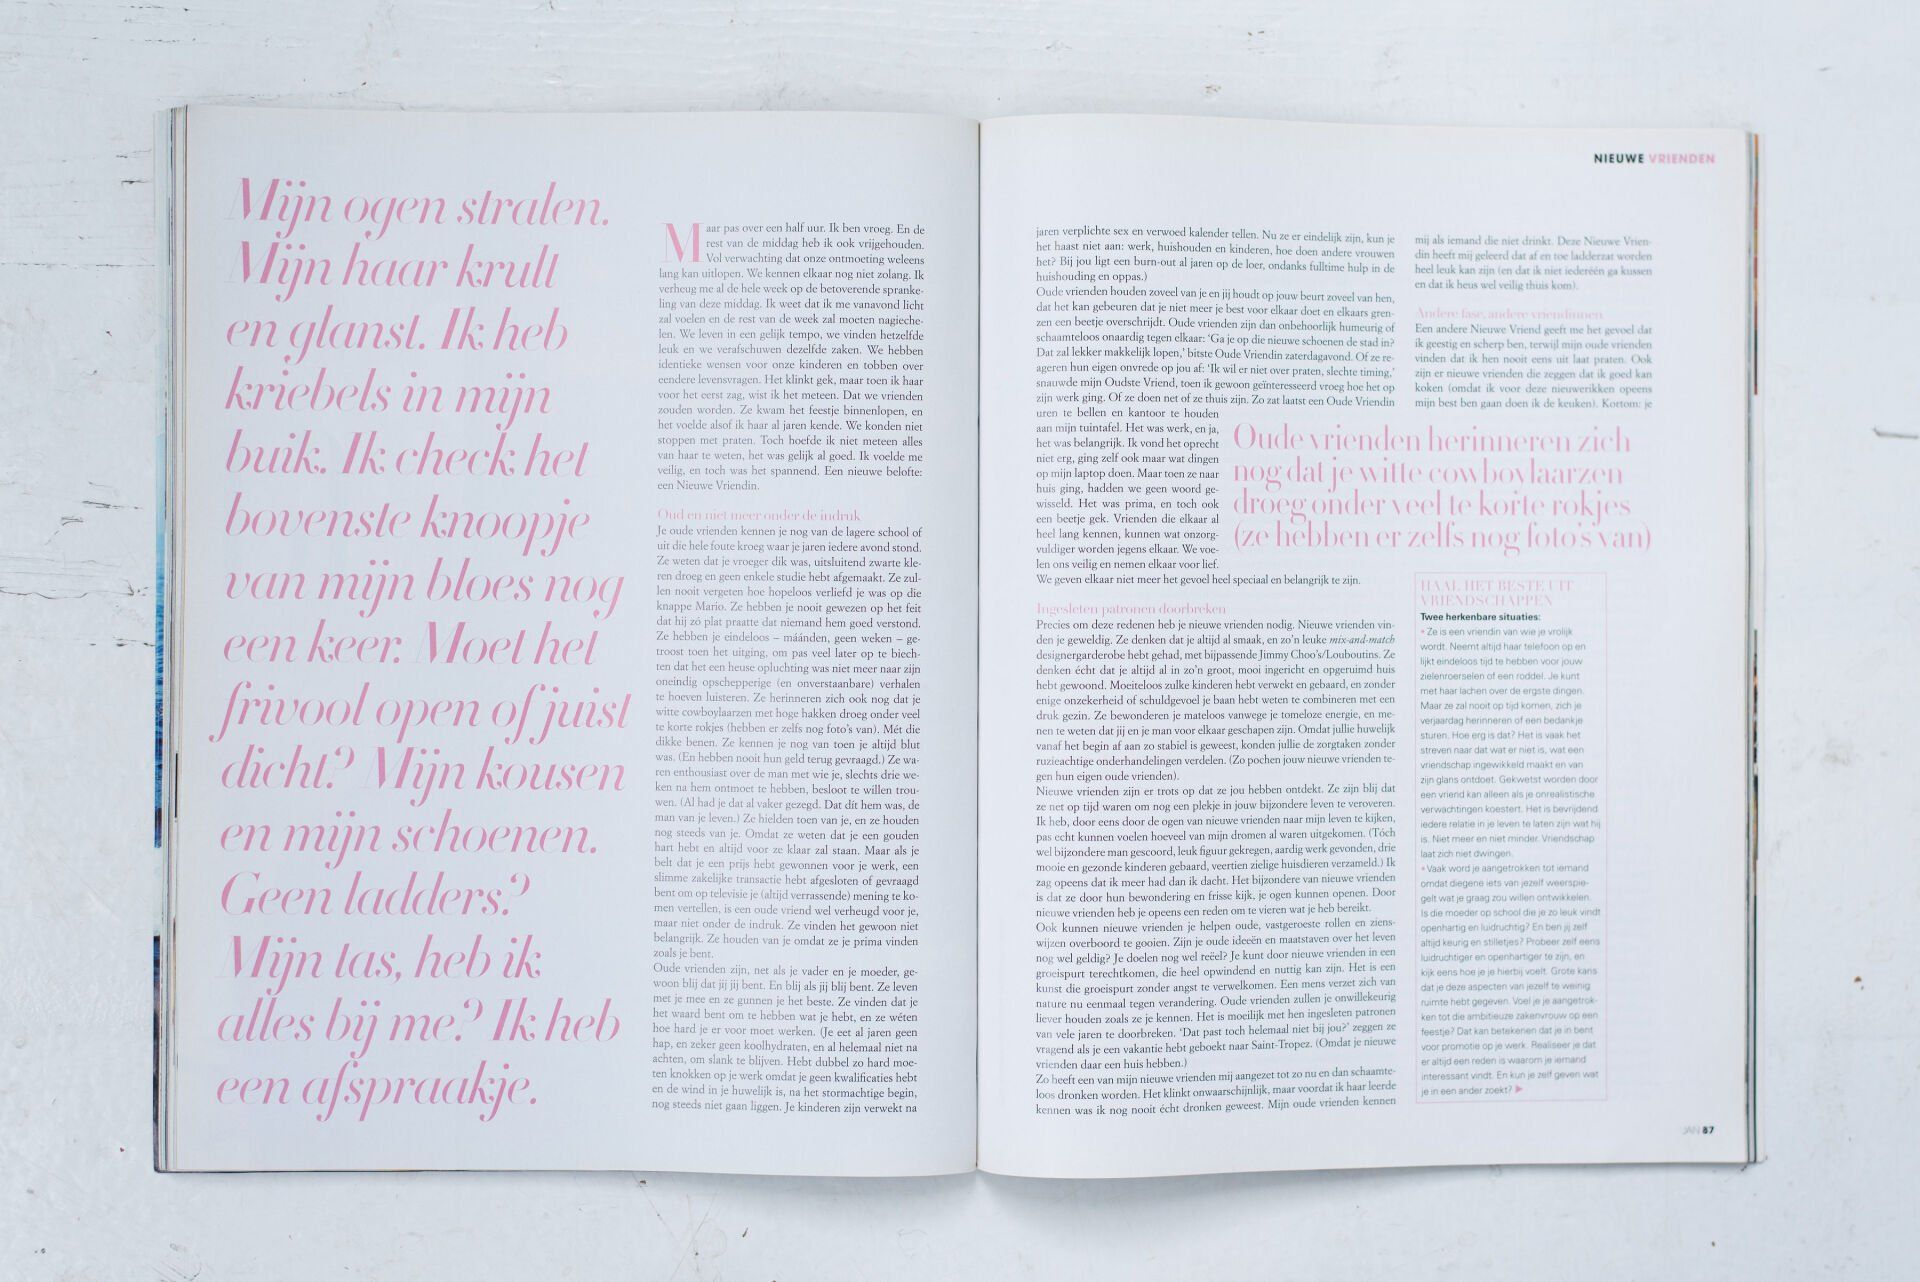 Mijn ogen stralen.
Mijn haar krult
en glanst. Ik heb
kriebels in mijn
buik. Ik check het
bovenste knoopje
van mijn bloes nog
een keer. Moet het
frivool open of juist
dicht? Mijn kousen
en mijn schoenen.
Geen ladders?
Mijn tas, heb ik
alles bij me? Ik heb
een afspraakje.
Maar pas over een half uur. Ik ben vroeg. En de
rest van de middag heb ik ook vrijgehouden.
Vol verwachting dat onze ontmoeting weleens
lang kan uitlopen. We kennen elkaar nog niet zolang. Ik
verheug me al de hele week op de betoverende spranke-
ling van deze middag. Ik weet dat ik me vanavond licht
zal voelen en de rest van de week zal moeten nagieche-
len. We leven in een gelijk tempo, we vinden hetzelfde
leuk en we verafschuwen dezelfde zaken. We hebben
identieke wensen voor onze kinderen en tobben over
eendere levensvragen. Het klinkt gek, maar toen ik haar
voor het eerst zag, wist ik het meteen. Dat we vrienden
zouden worden. Ze kwam het feestje binnenlopen, en
het voelde alsof ik haar al jaren kende. We konden niet
stoppen met praten. Toch hoefde ik niet meteen alles
van haar te weten, het was gelijk al goed. Ik voelde me
veilig, en toch was het spannend. Een nieuwe belofte:
een Nieuwe Vriendin.
Oud en niet meer onder de indruk
Je oude vrienden kennen je nog van de lagere school of
uit die hele foute kroeg waar je jaren iedere avond stond.
Ze weten dat je vroeger dik was, uitsluitend zwarte kle-
ren droeg en geen enkele studie hebt afgemaakt. Ze zul-
len nooit vergeten hoe hopeloos verliefd je was op die
knappe Mario. Ze hebben je nooit gewezen op het feit
dat hij zó plat praatte dat niemand hem goed verstond.
Ze hebben je eindeloos – máánden, geen weken – ge-
troost toen het uitging, om pas veel later op te biech-
ten dat het een heuse opluchting was niet meer naar zijn
oneindig opschepperige (en onverstaanbare) verhalen
te hoeven luisteren. Ze herinneren zich ook nog dat je
witte cowboylaarzen met hoge hakken droeg onder veel
te korte rokjes (hebben er zelfs nog foto's van). Mét die
dikke benen. Ze kennen je nog van toen je altijd blut
was. (En hebben nooit hun geld terug gevraagd.) Ze wa-
ren enthousiast over de man met wie je, slechts drie we-
ken na hem ontmoet te hebben, besloot te willen trou-
wen. (Al had je dat al vaker gezegd. Dat dít hem was, de
man van je leven.) Ze hielden toen van je, en ze houden
nog steeds van je. Omdat ze weten dat je een gouden
hart hebt en altijd voor ze klaar zal staan. Maar als je
belt dat je een prijs hebt gewonnen voor je werk, een
slimme zakelijke transactie hebt afgesloten of gevraagd
bent om op televisie je (altijd verrassende) mening te ko-
men vertellen, is een oude vriend wel verheugd voor je,
maar niet onder de indruk. Ze vinden het gewoon niet
belangrijk. Ze houden van je omdat ze je prima vinden
zoals je bent.
Oude vrienden zijn, net als je vader en je moeder, ge-
woon blij dat jij jij bent. En blij als jij blij bent. Ze leven
met je mee en ze gunnen je het beste. Ze vinden dat je
het waard bent om te hebben wat je hebt, en ze wéten
hoe hard je er voor moet werken. (Je eet al jaren geen
hap, en zeker geen koolhydraten, en al helemaal niet na
achten, om slank te blijven. Hebt dubbel zo hard moe-
ten knokken op je werk omdat je geen kwalificaties hebt
en de wind in je huwelijk is, na het stormachtige begin,
nog steeds niet gaan liggen. Je kinderen zijn verwekt na
NIEUWE VRIENDEN
jaren verplichte sex en verwoed kalender tellen. Nu ze er eindelijk zijn, kun je
het haast niet aan: werk, huishouden en kinderen, hoe doen andere vrouwen
het? Bij jou ligt een burn-out al jaren op de loer, ondanks fulltime hulp in de
huishouding en oppas.)
Oude vrienden houden zoveel van je en jij houdt op jouw beurt zoveel van hen,
dat het kan gebeuren dat je niet meer je best voor elkaar doet en elkaars gren-
zen een beetje overschrijdt. Oude vrienden zijn dan onbehoorlijk humeurig of
schaamteloos onaardig tegen elkaar: 'Ga je op die nieuwe schoenen de stad in?
Dat zal lekker makkelijk lopen,' bitste Oude Vriendin zaterdagavond. Of ze re-
ageren hun eigen onvrede op jou af: 'Ik wil er niet over praten, slechte timing,'
snauwde mijn Oudste Vriend, toen ik gewoon geïnteresseerd vroeg hoe het op
zijn werk ging. Of ze doen net of ze thuis zijn. Zo zat laatst een Oude Vriendin
uren te bellen en kantoor te houden
aan mijn tuintafel. Het was werk, en ja,
het was belangrijk. Ik vond het oprecht
niet erg, ging zelf ook maar wat dingen
op mijn laptop doen. Maar toen ze naar
huis ging, hadden we geen woord ge-
wisseld. Het was prima, en toch ook
een beetje gek. Vrienden die elkaar al
heel lang kennen, kunnen wat onzorg-
vuldiger worden jegens elkaar. We voe-
len ons veilig en nemen elkaar voor lief.
We geven elkaar niet meer het gevoel heel speciaal en belangrijk te zijn.
Ingesleten patronen doorbreken
Precies om deze redenen heb je nieuwe vrienden nodig. Nieuwe vrienden vin-
den je geweldig. Ze denken dat je altijd al smaak, en zo'n leuke mix-and-match
designergarderobe hebt gehad, met bijpassende Jimmy Choo's/Louboutins. Ze
denken écht dat je altijd al in zo'n groot, mooi ingericht en opgeruimd huis
hebt gewoond. Moeiteloos zulke kinderen hebt verwekt en gebaard, en zonder
enige onzekerheid of schuldgevoel je baan hebt weten te combineren met een
druk gezin. Ze bewonderen je mateloos vanwege je tomeloze energie, en me-
nen te weten dat jij en je man voor elkaar geschapen zijn. Omdat jullie huwelijk
vanaf het begin af aan zo stabiel is geweest, konden jullie de zorgtaken zonder
ruzieachtige onderhandelingen verdelen. (Zo pochen jouw nieuwe vrienden te-
gen hun eigen oude vrienden).
Nieuwe vrienden zijn er trots op dat ze jou hebben ontdekt. Ze zijn blij dat
ze net op tijd waren om nog een plekje in jouw bijzondere leven te veroveren.
Ik heb, door eens door de ogen van nieuwe vrienden naar mijn leven te kijken,
pas echt kunnen voelen hoeveel van mijn dromen al waren uitgekomen. (Tóch
wel bijzondere man gescoord, leuk figuur gekregen, aardig werk gevonden, drie
mooie en gezonde kinderen gebaard, veertien zielige huisdieren verzameld.) Ik
zag opeens dat ik meer had dan ik dacht. Het bijzondere van nieuwe vrienden
is dat ze door hun bewondering en frisse kijk, je ogen kunnen openen. Door
nieuwe vrienden heb je opeens een reden om te vieren wat je heb bereikt.
Ook kunnen nieuwe vrienden je helpen oude, vastgeroeste rollen en ziens-
wijzen overboord te gooien. Zijn je oude ideeën en maatstaven over het leven
nog wel geldig? Je doelen nog wel reëel? Je kunt door nieuwe vrienden in een
groeispurt terechtkomen, die heel opwindend en nuttig kan zijn. Het is een
kunst die groeispurt zonder angst te verwelkomen. Een mens verzet zich van
nature nu eenmaal tegen verandering. Oude vrienden zullen je onwillekeurig
liever houden zoals ze je kennen. Het is moeilijk met hen ingesleten patronen
van vele jaren te doorbreken. 'Dat past toch helemaal niet bij jou?' zeggen ze
vragend als je een vakantie hebt geboekt naar Saint-Tropez. (Omdat je nieuwe
vrienden daar een huis hebben.)
Zo heeft een van mijn nieuwe vrienden mij aangezet tot zo nu en dan schaamte-
loos dronken worden. Het klinkt onwaarschijnlijk, maar voordat ik haar leerde
kennen was ik nog nooit écht dronken geweest. Mijn oude vrienden kennen
mij als iemand die niet drinkt. Deze Nieuwe Vrien-
din heeft mij geleerd dat af en toe ladderzat worden
heel leuk kan zijn (en dat ik niet iederéén ga kussen
en dat ik heus wel veilig thuis kom).
Andere fase, andere vriendinnen
Een andere Nieuwe Vriend geeft me het gevoel dat
ik geestig en scherp ben, terwijl mijn oude vrienden
vinden dat ik hen nooit eens uit laat praten. Ook
zijn er nieuwe vrienden die zeggen dat ik goed kan
koken (omdat ik voor deze nieuwerikken opeens
mijn best ben gaan doen ik de keuken). Kortom: je
Oude vrienden herinneren zich
nog dat je witte cowboylaarzen
droeg onder veel te korte rokjes
(ze hebben er zelfs nog foto's van)
HAAL HET BESTE UIT
VRIENDSCHAPPEN
Twee herkenbare situaties:
• Ze is een vriendin van wie je vrolijk
wordt. Neemt altijd haar telefoon op en
lijkt eindeloos tijd te hebben voor jouw
zielenroerselen of een roddel. Je kunt
met haar lachen over de ergste dingen.
Maar ze zal nooit op tijd komen, zich je
verjaardag herinneren of een bedankje
sturen. Hoe erg is dat? Het is vaak het
streven naar dat wat er niet is, wat een
vriendschap ingewikkeld maakt en van
zijn glans ontdoet. Gekwetst worden door
een vriend kan alleen als je onrealistische
verwachtingen koestert. Het is bevrijdend
iedere relatie in je leven te laten zijn wat hij
is. Niet meer en niet minder. Vriendschap
laat zich niet dwingen.
• Vaak word je aangetrokken tot iemand
omdat diegene iets van jezelf weerspie-
gelt wat je graag zou willen ontwikkelen.
Is die moeder op school die je zo leuk vindt
openhartig en luidruchtig? En ben jij zelf
altijd keurig en stilletjes? Probeer zelf eens
luidruchtiger en openhartiger te zijn, en
kijk eens hoe je je hierbij voelt. Grote kans
dat je deze aspecten van jezelf te weinig
ruimte hebt gegeven. Voel je je aangetrok-
ken tot die ambitieuze zakenvrouw op een
feestje? Dat kan betekenen dat je in bent
voor promotie op je werk. Realiseer je dat
er altijd een reden is waarom je iemand
interessant vindt. En kun je zelf geven wat
je in een ander zoekt? ▶
JAN 87